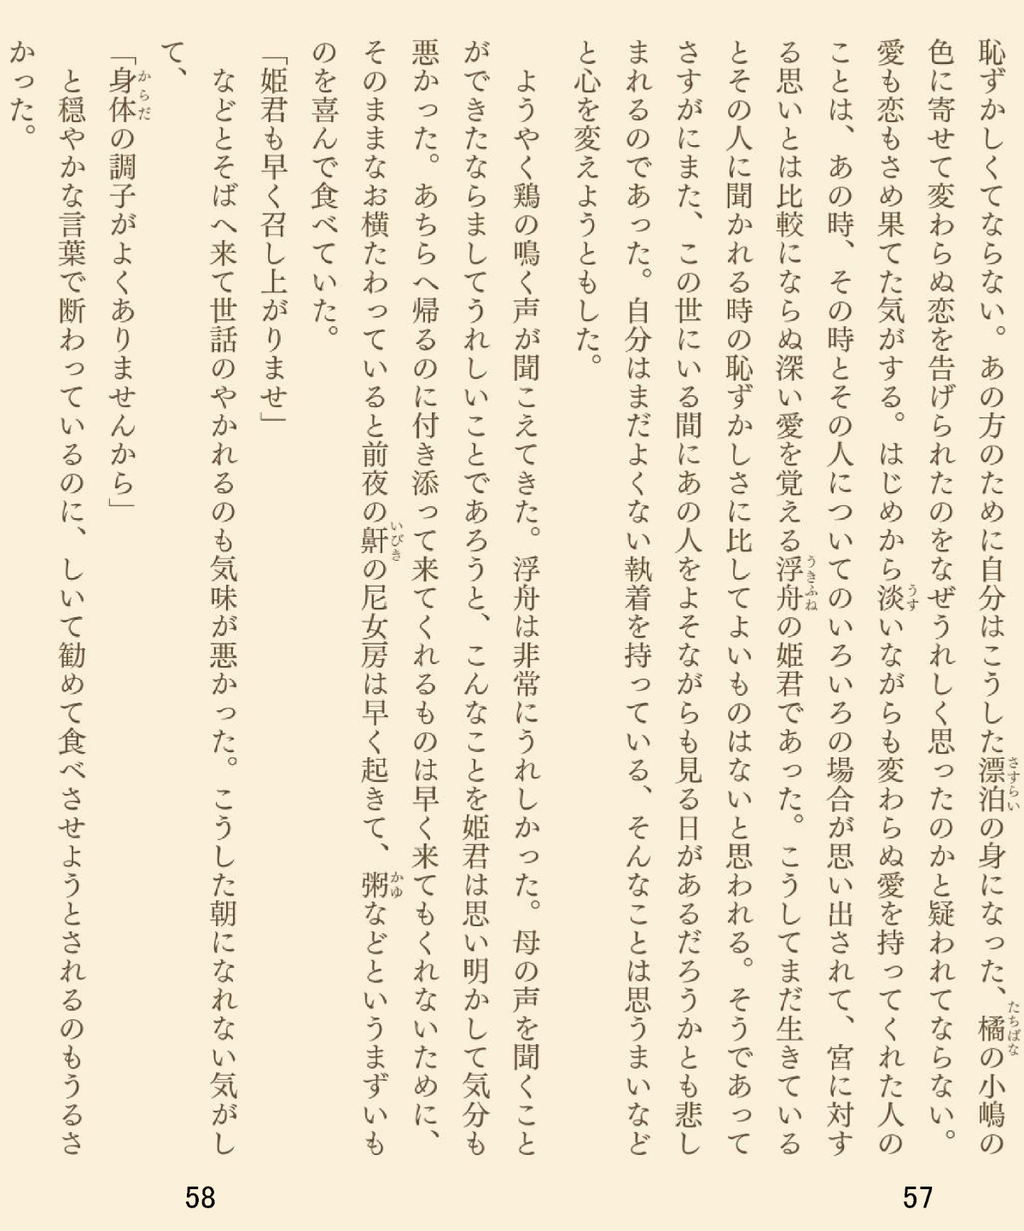 恥ずかしくてならない。あの方のために自分はこうした漂泊の身になった、橘の小嶋の
色に寄せて変わらぬ恋を告げられたのをなぜうれしく思ったのかと疑われてならない。
愛も恋もさめ果てた気がする。はじめから淡いながらも変わらぬ愛を持ってくれた人の
ことは、あの時、その時とその人についてのいろいろの場合が思い出されて、宮に対す
る思いとは比較にならぬ深い愛を覚える浮舟の姫君であった。こうしてまだ生きている
とその人に聞かれる時の恥ずかしさに比してよいものはないと思われる。そうであって
さすがにまた、この世にいる間にあの人をよそながらも見る日があるだろうかとも悲し
まれるのであった。自分はまだよくない執着を持っている、そんなことは思うまいなど
と心を変えようともした。
ようやく鶏の鳴く声が聞こえてきた。浮舟は非常にうれしかった。母の声を聞くこと
ができたならましてうれしいことであろうと、こんなことを姫君は思い明かして気分も
悪かった。あちらへ帰るのに付き添って来てくれるものは早く来てもくれないために、
そのままなお横たわっていると前夜の鼾の尼女房は早く起きて、粥などというまずいも
のを喜んで食べていた。
「姫君も早く召し上がりませ」
などとそばへ来て世話のやかれるのも気味が悪かった。こうした朝になれない気がし
て、
「身体の調子がよくありませんから」
と穏やかな言葉で断わっているのに、しいて勧めて食べさせようとされるのもうるさ
かった。
さすらい
たちばな
うす
うきふね
いびき
かゆ
からだ
57
58